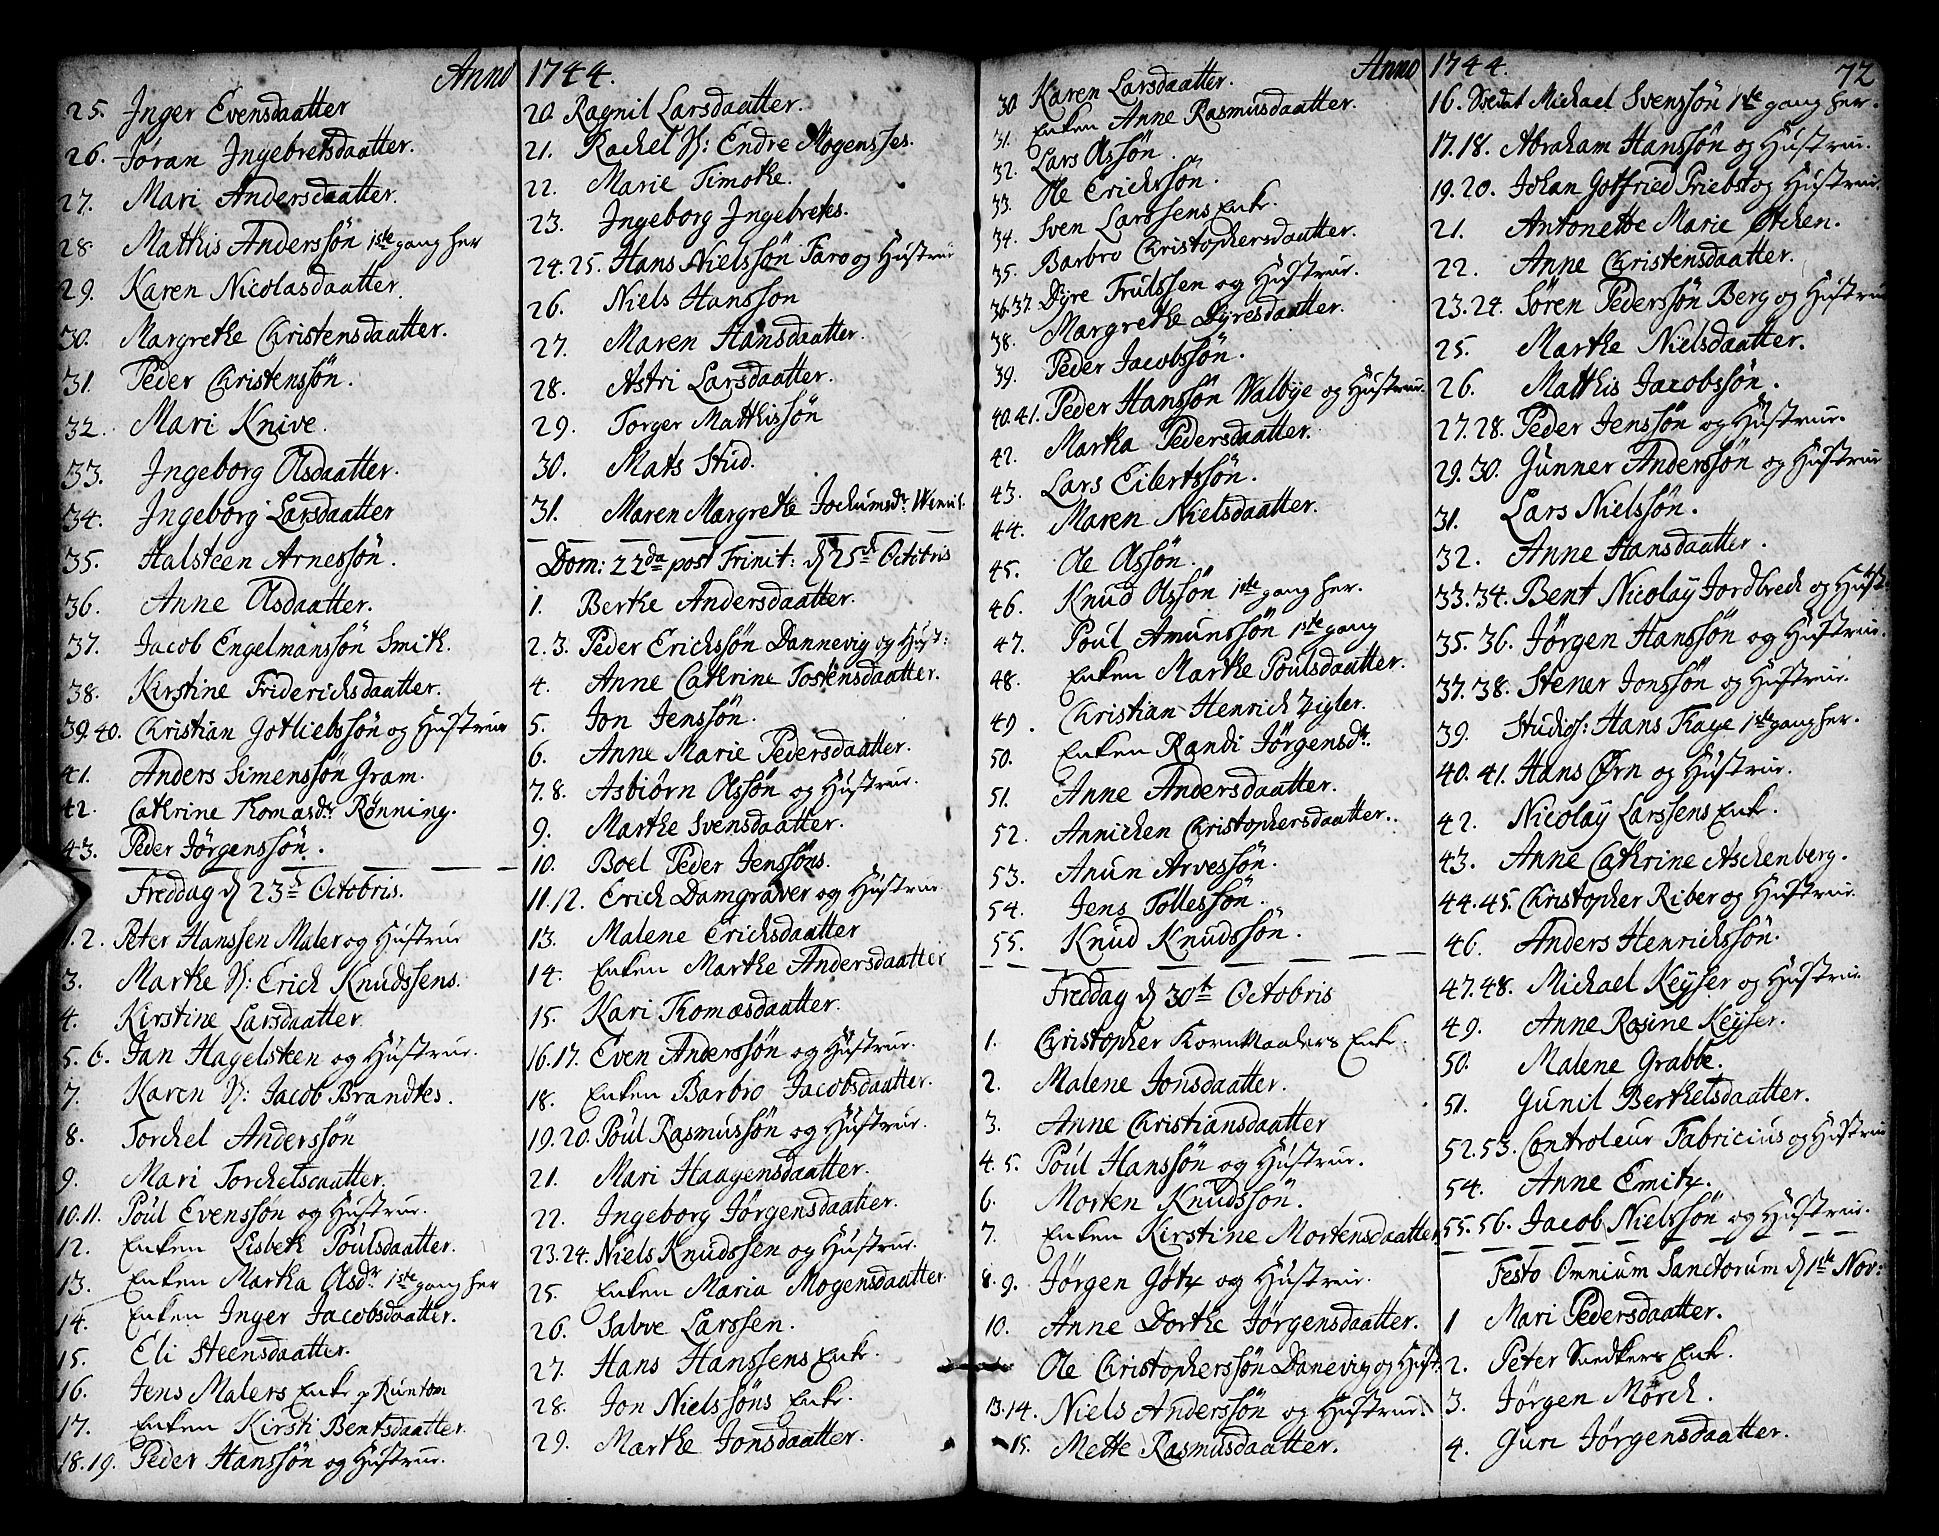 Anno 1744.
25. Inger Evensdaatter
26. Jøran Ingebretsdaatter.
27. Mari Andersdaatter.
28 Mathis Anderssön 1ste gang her
29. Karen Nicolasdaatter.
30. Margrethe Christensdaatter.
31. Peder Christenssön.
32. Mari Knive.
33. Ingeborg Olsdaatter.
34. Ingeborg Larsdaatter
35. Halsteen Arnessön.
36. Anne Olsdaatter.
37. Jacob Engelmanssön Smith.
38. Kirstine Friderichsdaatter.
39. 40. Christian Gotliebssön og Hustrue
41. Anders Simenssön Gram.
42. Cathrine Thomasdr Rønning.
43. Peder Jörgenssön.
Freddag d 23de Octobris.
1. 2. Peter Hanssen Maler og Hustrue
3. Marthe H: Erich Knudssens.
4. Kirstine Larsdaatter
5. 6. Jan Hagelsteen og Hustrue.
7. Karen H: Jacob Brandtes.
8. Torchel Anderssön
9. Mari Torchelsdaatter.
10. 11. Poul Evenssön og Hustrue.
12. Enken Lisbeth Poulsdaatter.
13. Enken Martha Olsdr 1ste gang her
14. Enken Inger Jacobsdaatter.
15. Eli Steensdaatter.
16. Jens Malers Enke p Runtom
17. Enken Kirsti Bentsdaatter.
18. 19. Peder Hanssön og Hustrue.
20. Ragnil Larsdaatter.
21. Rachel H: Endre Mogensses.
22. Marie Timothe.
23. Ingeborg Ingebretes.
24. 25. Hans Nielssön Faro og Hustrue
26. Niels Hansson
27. Maren Hansdaatter.
28. Astri Larsdaatter.
29. Torger Mathissön
30. Mats Stud.
31. Maren Margrethe Jochumsdr
Dom: 22da post Trinit: d 25de Octobris
1. Berthe Andersdaatter.
2. 3. Peder Erichssön Dannevig og Hust:
4. Anne Cathrine Tostensdaatter.
5. Jon Jenssön.
6. Anne Marie Pedersdaatter.
7. 8. Asbiørn Olssön og Hustrue.
9. Marthe Svensdaatter.
10. Boel Peder Jenssöns.
11. 12. Erich Damgraver og Hustrue
13. Malene Erichsdaatter
14. Enken Marthe Andersdaatter
15. Kari Thomasdaatter.
16. 17. Even Anderssön og Hustrue.
18. Enken Barbro Jacobsdaatter.
19. 20. Poul Rasmussön og Hustrue.
21. Mari Haagensdaatter.
22. Ingeborg Jörgensdaatter.
23. 24. Niels Knudssen og Hustrue.
25. Enken Maria Mogensdaatter
26. Salve Larssen.
27. Hans Hanssens Enke.
28. Jon Nielssöns Enke.
29. Marthe Jonsdaatter.
Anno 1744. 72
30 Karen Larsdaatter.
31. Enken Anne Rasmusdaatter.
32. Lars Olssön.
33. Ole Erichssön.
34. Sven Larssens Enke.
35. Barbro Christophersdaatter.
36. 37. Dyre Trulssen og Hustrue.
38. Margrethe Dyresdaatter.
39. Peder Jacobssön.
40. 41. Peder Hanssön Walbye og Hustrue.
42. Martha Pedersdaatter.
43. Lars Eilertssön.
44. Maren Nielsdaatter.
45. Ole Olssön.
46. Knud Olssön 1ste gang her.
47. Poul Amunssön 1ste gang
48. Enken Marthe Poulsdaatter.
49. Christian Henrich Zigler.
50. Enken Randi Jörgensdr.
51. Anne Andersdaatter.
52. Annichen Christophersdaatter.
53. Anun Arvessön.
54. Jens Tollessön.
55. Knud Knudssön.
Freddag d 30te Octobris
1. Christopher KornMaalers Enke.
2. Malene Jonsdaatter.
3. Anne Christiansdaatter
4. 5. Poul Hanssön og Hustrue.
6. Morten Knudssön.
7. Enken Kirstine Mortensdaatter
8. 9. Jörgen Götz og Hustrue.
10. Anne Dorthe Jörgensdaatter.
Ole Christopherssön Danevig og Hust.
13. 14. Niels Anderssön og Hustrue.
15. Mette Rasmusdaatter.
16. Svedst Michael Svenssön 1ste gang her.
17. 18. Abraham Hanssön og Hustrue.
19. 20. Johan Gotfried Priebst og Hustrue.
21. Antonette Marie Otchen.
22. Anne Christensdaatter.
23. 24. Sören Pederssön Berg og Hustrue
25. Marthe Nielsdaatter.
26. Matthis Jacobssön.
27. 28. Peder Jenssön og Hustrue.
29. 30. Gunner Anderssön og Hustrue
31. Lars Nielssön.
32. Anne Hansdaatter.
33. 34. Bent Nicolay Jordbrech og Hust.
35. 36. Jörgen Hanssön og Hustrue.
37. 38. Stener Jonssön og Hustrue.
39. Studios: Hans Thaye 1ste gang her.
40. 41. Hans Ørn og Hustrue.
42. Nicolay Larssens Enke.
43. Anne Cathrine Aschenberg.
44. 45. Christopher Riber og Hustrue.
46. Anders Henrichssön.
47. 48. Michael Keyser og Hustrue.
49. Anne Rosine Keyser.
50. Malene Grabbe.
51. Gunil Berthelsdaatter.
52. 53. Controleur Fabricius og Hustrue
54. Anne Emitz.
55. 56. Jacob Nielssön og Hustrue.
Festo Omnium Sanctorum d 1ste Nov:
1 Mari Pedersdaatter.
2. Peter Snedkers Enke.
3. Jörgen Mörch.
4. Guri Jörgensdaatter.